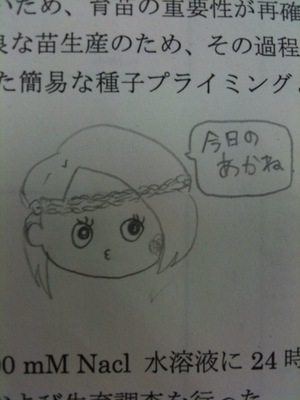 いため、育苗の重要性が再確
良な苗生産のため、その過程
た簡易な種子プライミング
今日の
あかね
00 mM Nacl 水溶液に 24 時
および生育調査を行った